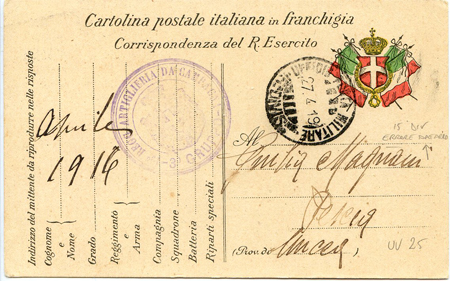 Cartolina postale italiana in franchigia
Corrispondenza del R. Esercito
Indirizzo del mittente da riprodurre nelle risposte
Cognome e Nome
Grado
Reggimento e Arma
Compagnia
Squadrone
Batteria
Riparti speciali
Aprile
1916
ARTIGLIERIA DA
UFFICIO
MILITARE
27.4.
15 DIV
Al
Magnani
Pescia
(Prov. de Lucca)
UV 25